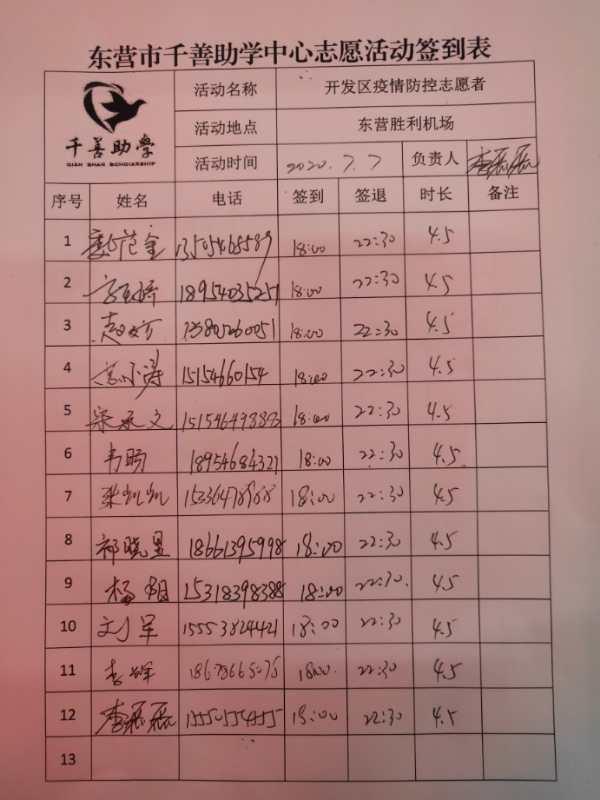 东营市千善助学中心志愿活动签到表
千善助学
QIAN SHAN SCHOLARSHIP
活动名称 开发区疫情防控志愿者
活动地点 东营胜利机场
活动时间 2020.7.7 负责人 李磊磊
序号 姓名 电话 签到 签退 时长 备注
1 18:00 22:30 4.5
2 18954035251 18:00 22:30 4.5
3 18:00 22:30 4.5
4 15154660154 18:00 22:30 4.5
5 宋承文 18:00 22:30 4.5
6 韦旸 18954684321 18:00 22:30 4.5
7 张凯凯 18:00 22:30 4.5
8 祁晓昱 18661395998 18:00 22:30 4.5
9 杨娟 15318398388 18:00 22:30. 4.5
10 刘军 15553824421 18:00 22:30 4.5
11 18:00. 22:30 4.5
12 李磊磊 18:00 22:30 4.5
13